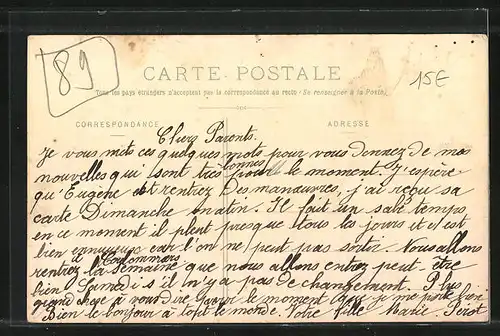 89
15€
CARTE POSTALE
Tous les pays étrangers n'acceptent pas la correspondance au recto (Se renseigner à la Poste)
CORRESPONDANCE
ADRESSE
Chers Parents.
Je vous mets ces quelques mots pour vous donnez de mes
nouvelles qui sont très bonnes pour le moment. J'espère
qu'Eugène est rentrez des manœuvres, j'ai reçu sa
carte Dimanche matin. Il fait un sale temps
en ce moment il pleut presque tous les jours et c'est
bien ennuyeux car l'on ne peut pas sortir. Nous allons
rentrez à Coulommiers
la semaine que nous allons entrez peut-être
bien Samedi s'il n'y a pas de changement. Plus
grand chose à vous dire pour le moment je me porte bien.
Bien le bonjour à tout le monde. Votre fille Marie